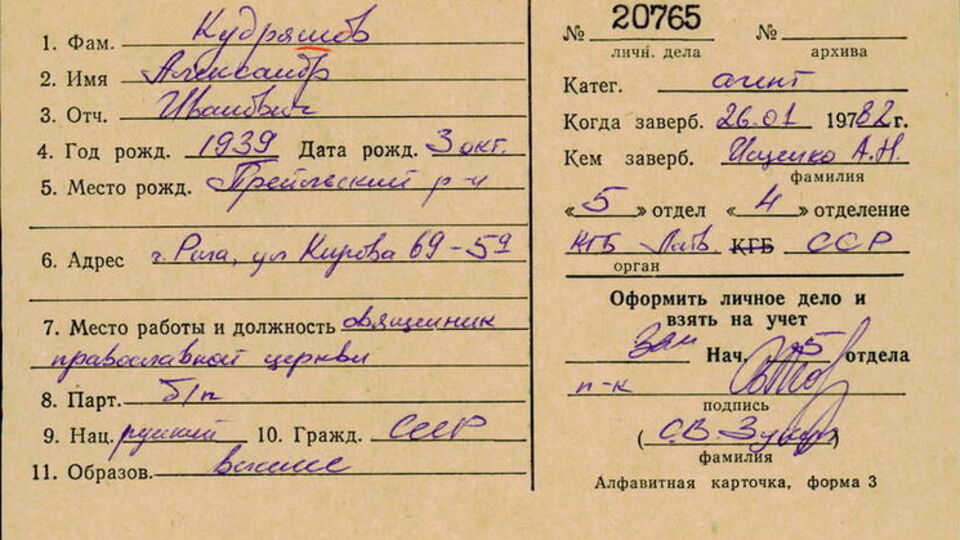 1. Фам. Кудряшов
2. Имя Александр
3. Отч. Иванович
4. Год рожд. 1939 Дата рожд. 3 окт.
5. Место рожд. Прейльский р-н
6. Адрес г. Рига, ул Кирова 69-59
7. Место работы и должность священник
православной церкви
8. Парт. б/п
9. Нац. русский 10. Гражд. СССР
11. Образов. высшее
№ 20765 №
личн. дела архива
Катег. агент
Когда заверб. 26.01 1982 г.
Кем заверб. Ищенко А.Н.
фамилия
«5» отдел «4» отделение
КГБ Латв. КГБ ССР
орган
Оформить личное дело и
взять на учет
Зам Нач. 5 отдела
п-к
подпись
(С.В. )
фамилия
Алфавитная карточка, форма 3